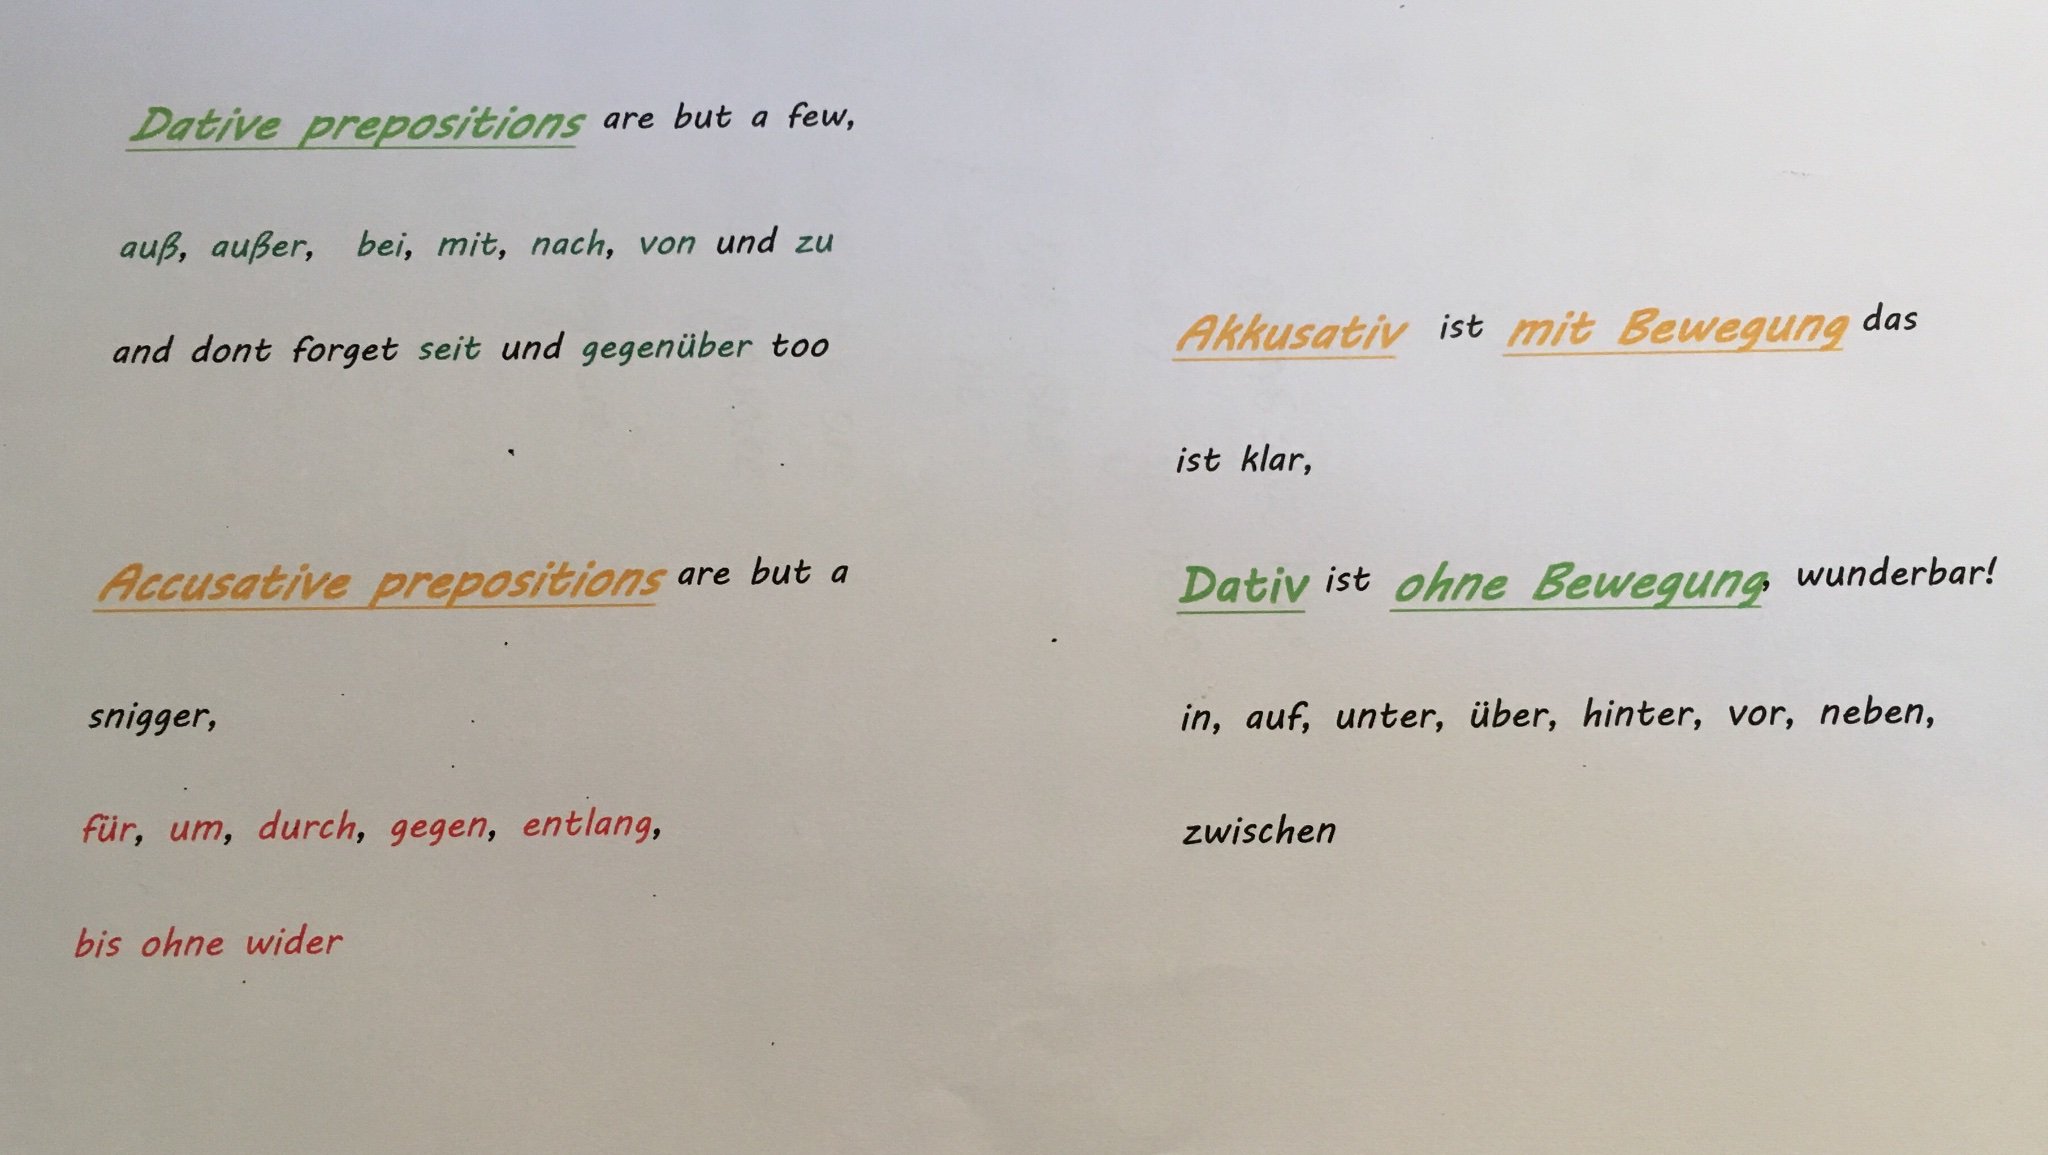 Dative prepositions are but a few,
auß, außer, bei, mit, nach, von und zu
and dont forget seit und gegenüber too
Accusative prepositions are but a
snigger,
für, um, durch, gegen, entlang,
bis ohne wider
Akkusativ ist mit Bewegung das
ist klar,
Dativ ist ohne Bewegung, wunderbar!
in, auf, unter, über, hinter, vor, neben,
zwischen